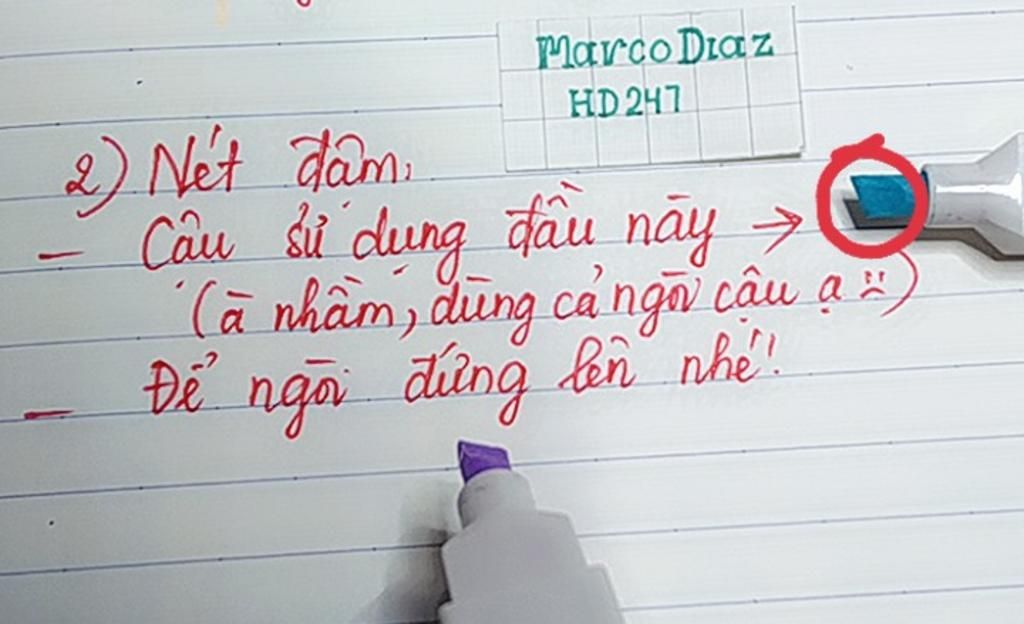 Marco Diaz
HD247
2) Nét đậm.
- Cậu sử dụng đầu này →
(à nhầm, dùng cả ngòi cậu ạ :()
- Để ngòi đứng lên nhé!